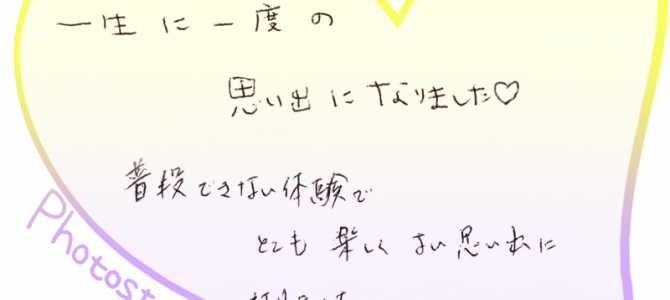 一生に一度の
思い出になりました♡
普段できない体験で
とても楽しく よい思い出に
Photost